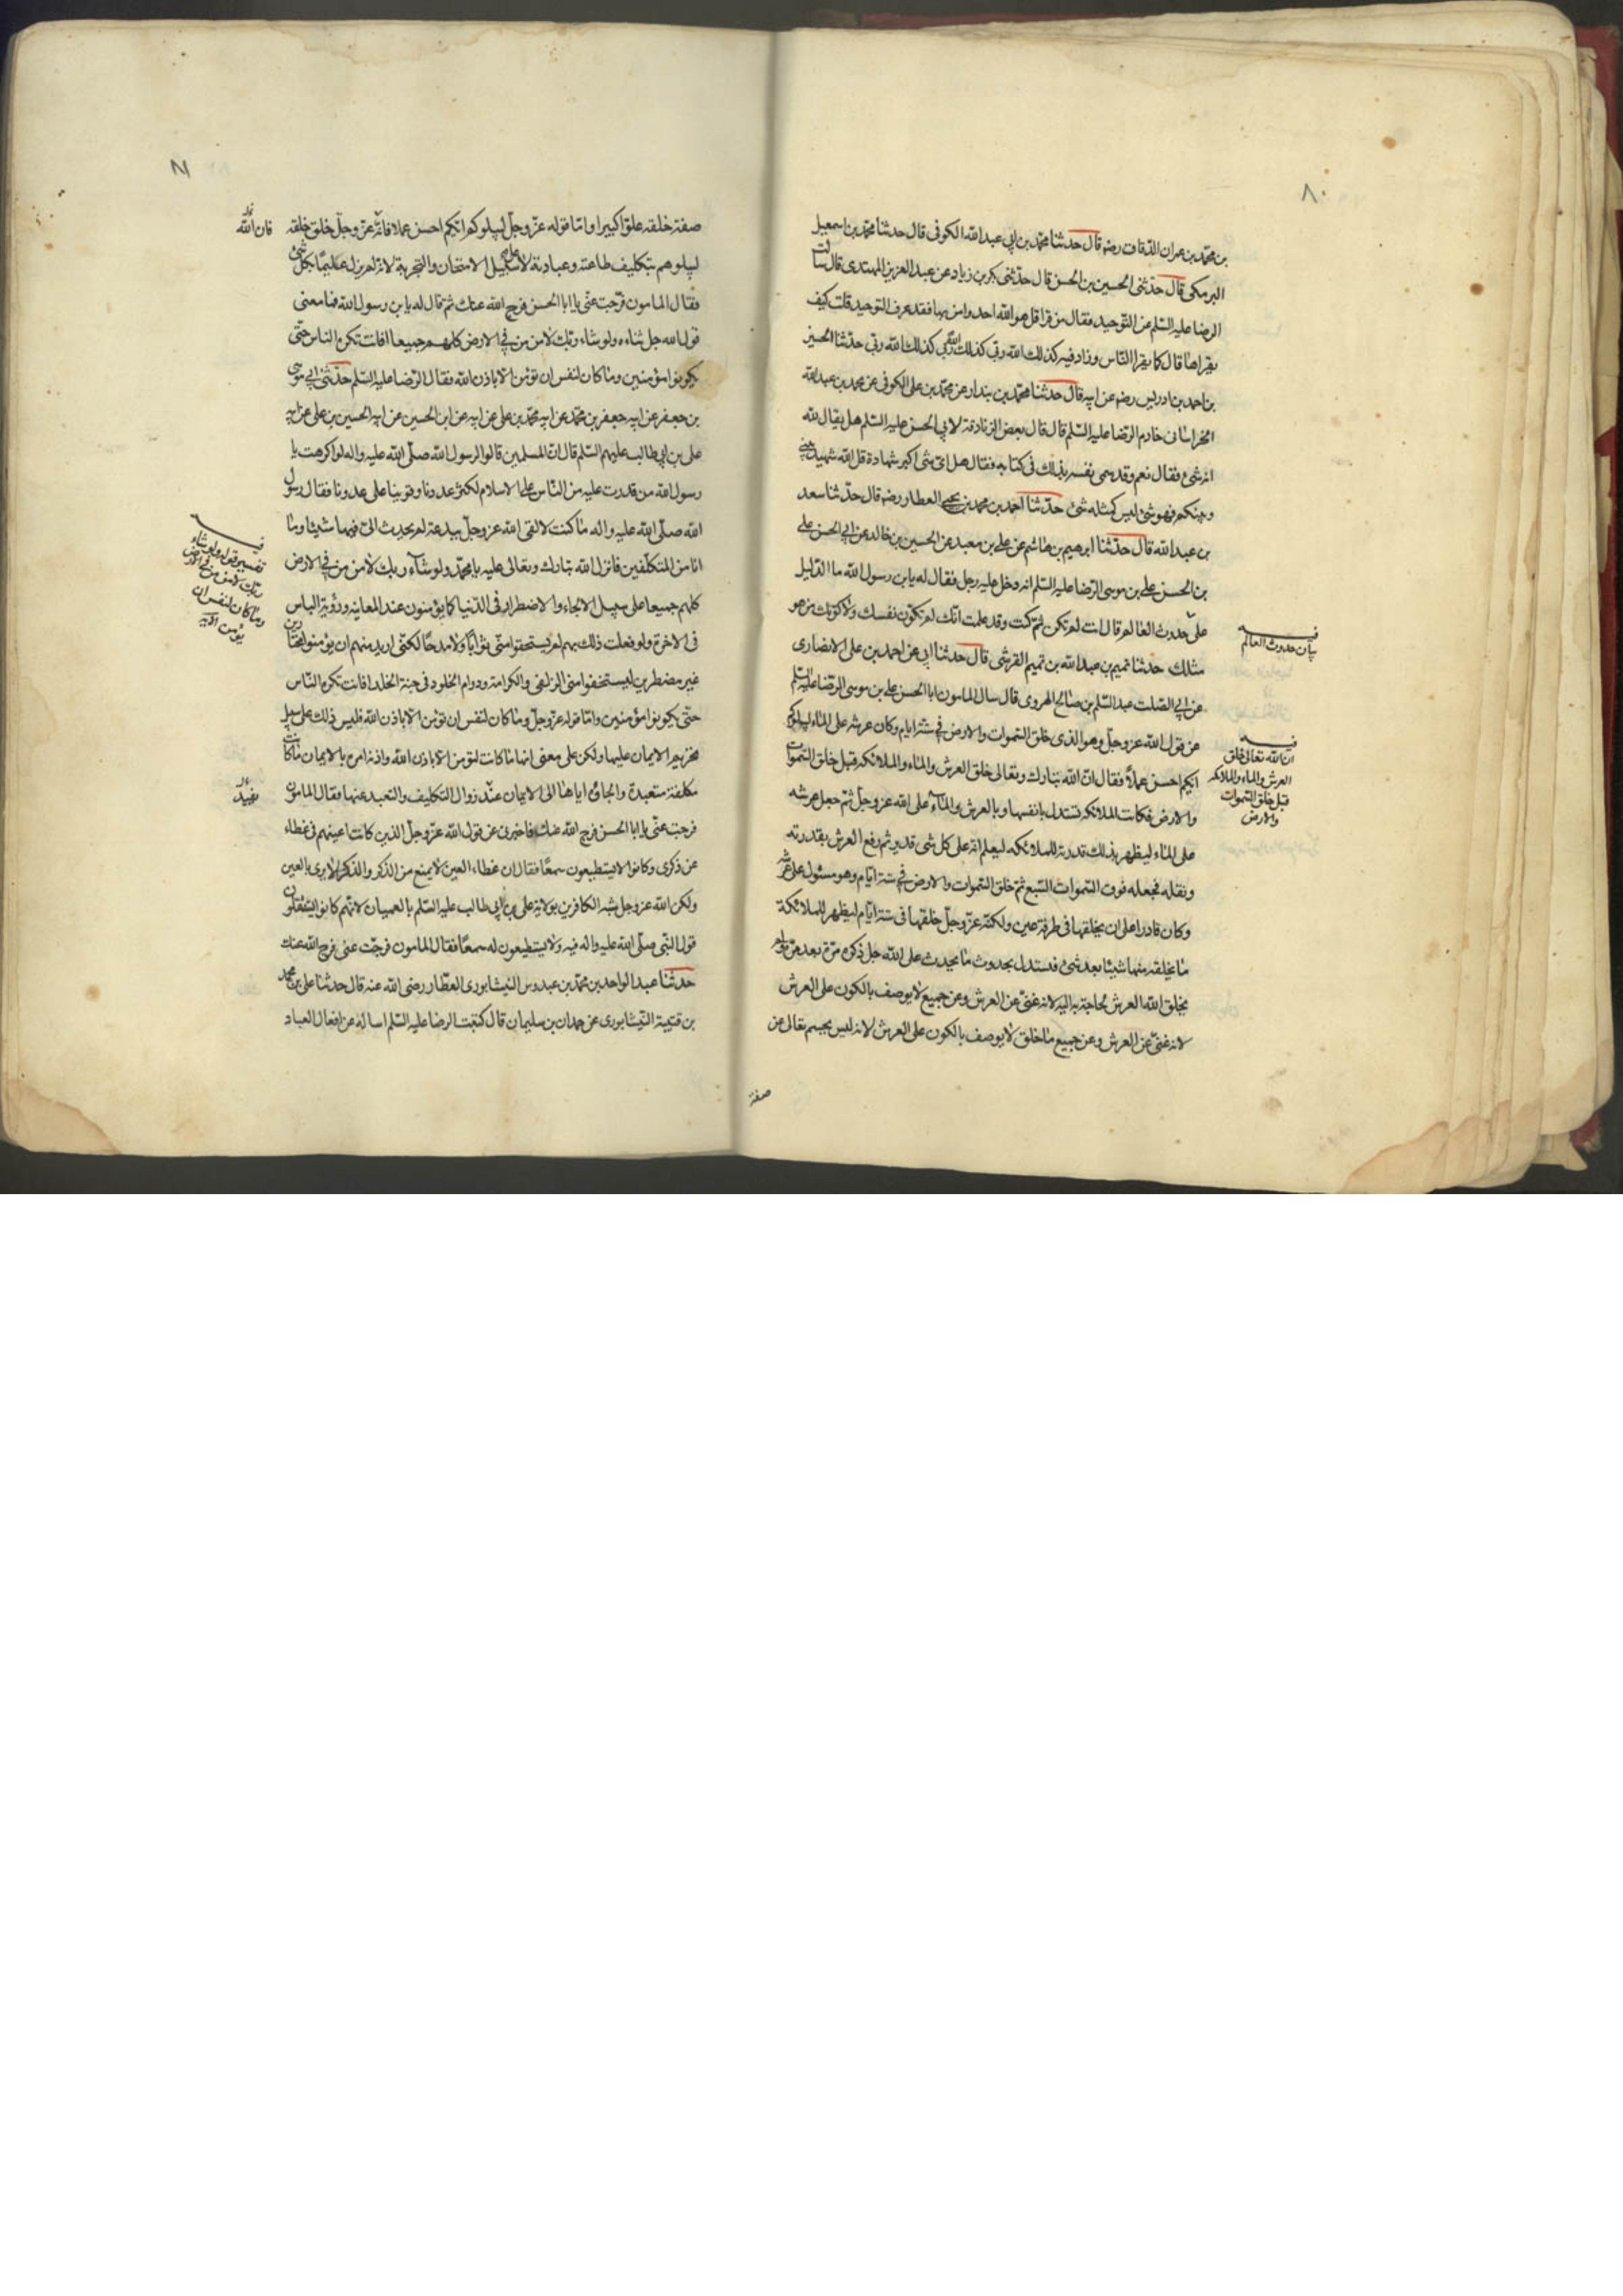 ٨٠
بن محمد بن عمران الدقاق رضه قال حدثنا محمد بن ابي عبد الله الكوفى قال حدثنا محمد بن اسمعيل
البرمكى قال حدثنى الحسين بن الحسن قال حدثنى بكر بن زياد عن عبد العزيز المهتدى قال سالت
الرضا عليه السلم عن التوحيد فقال من قرا قل هو الله احد وامن بها فقد عرف التوحيد قلت كيف
يقراها قال كما يقرا الناس وزاد فيه كذلك الله ربى كذلك الله ربى كذلك الله ربى حدثنا الحسين
بن احمد بن ادريس رضه عن ابيه قال حدثنا محمد بن بندار عن محمد بن على الكوفى عن محمد بن عبد الله
الخراسانى خادم الرضا عليه السلم قال قال بعض الزنادقة لابي الحسن عليه السلم هل يقال لله
انه شئ فقال نعم وقد سمى نفسه بذلك فى كتابه فقال قل اى شئ اكبر شهادة قل الله شهيد بينى
وبينكم فهو شئ ليس كمثله شئ حدثنا احمد بن محمد بن يحيى العطار رضه قال حدثنا سعد
بن عبد الله قال حدثنا ابرهيم بن هاشم عن على بن معبد عن الحسين بن خالد عن ابي الحسن على
بن الحسن على بن موسى الرضا عليه السلم انه دخل عليه رجل فقال له يا بن رسول الله ما الدليل
على حدوث العالم قال انت لم تكن ثم كنت وقد علمت انك لم تكون نفسك ولا كونك من هو
مثلك حدثنا تميم بن عبد الله بن تميم القرشى قال حدثنا ابي عن احمد بن على الانصارى
عن ابي الصلت عبد السلم بن صالح الهروى قال سال المامون ابا الحسن على بن موسى الرضا عليه السلم
عن قول الله عز وجل وهو الذى خلق السموات والارض فى ستة ايام وكان عرشه على الماء ليبلوكم
ايكم احسن عملا فقال ان الله تبارك وتعالى خلق العرش والماء والملائكه قبل خلق السموات
والارض فكانت الملائكه تستدل بانفسها وبالعرش والماء على الله عز وجل ثم جعل عرشه
على الماء ليظهر بذلك قدرته للملائكه ليعلم انه على كل شى قدير ثم رفع العرش بقدرته
ونقله فجعله فوق السموات السبع ثم خلق السموات والارض فى ستة ايام وهو مسئول على عرشه
وكان قادرا على ان يخلقها فى طرفة عين ولكنه عز وجل خلقها فى ستة ايام ليظهر للملائكة
ما يخلقه منها شيئا بعد شئ فستدل بحدوث ما يحدث على الله جل ذكره مرة بعد مرة ولم
يخلق الله العرش لحاجة به اليه لانه غنى عن العرش وعن جميع لا يوصف بالكون على العرش
لانه غنى عن العرش وعن جميع ما خلق لا يوصف بالكون على العرش لانه ليس بجسم تعالى عن
صفة
فيه بيان حدوث العالم
فيه ان الله تعالى خلق
العرش والماء والملائكه
قبل خلق السموات
والارض
٨١
صفة خلقه علوا كبيرا واما قوله عز وجل ليبلوكم ايكم احسن عملا فانه عز وجل خلق خلقه
فان الله
ليبلوهم بتكليف طاعته وعبادته لا على سبيل الامتحان والتجربة لانه لم يزل عليما بكل شئ
فقال المامون فرجت عنى يا ابا الحسن فرج الله عنك ثم قال له يا بن رسول الله فما معنى
قول الله جل ثناءه ولو شاء ربك لامن من فى الارض كلهم جميعا افانت تكره الناس حتى
يكونوا مؤمنين وما كان لنفس ان تؤمن الا باذن الله فقال الرضا عليه السلم حدثنى ابي موسى
بن جعفر عن ابيه جعفر بن محمد عن ابيه محمد بن على عن ابيه على بن الحسين عن ابيه الحسين بن على عن ابيه
على بن ابي طالب عليهم السلم قال ان المسلمين قالوا لرسول الله صلى الله عليه واله لو اكرهت يا
رسول الله من قدرت عليه من الناس على الاسلام لكثر عددنا وقوينا على عدونا فقال رسول
الله صلى الله عليه واله ما كنت لالقى الله عز وجل ببدعة لم يحدث الى فيها شيئا وما
انا من المتكلفين فانزل الله تبارك وتعالى عليه يا محمد ولو شاء ربك لامن من فى الارض
كلهم جميعا على سبيل الالجاء والاضطرار فى الدنيا كما يؤمنون عند المعاينه ورؤية الباس
فى الاخرة ولو فعلت ذلك بهم لم يستحقوا منى ثوابا ولا مدحا لكنى اريد منهم ان يؤمنوا مختارين
غير مضطرين ليستحقوا منى الزلفى والكرامة ودوام الخلود فى جنة الخلد افانت تكره الناس
حتى يكونوا مؤمنين واما قوله عز وجل وما كان لنفس ان تؤمن الا باذن الله فليس ذلك على سبيل
تحريم الايمان عليها ولكن على معنى انها ما كانت لتؤمن الا باذن الله واذنه امره بالايمان ما كانت
مكلفة متعبدة والجاؤه اياها الى الايمان عند زوال التكليف والتعبد عنها فقال المامون
فرجت عنى يا ابا الحسن فرج الله عنك فاخبرنى عن قول الله عز وجل الذين كانت اعينهم فى غطاء
عن ذكرى وكانوا لا يستطيعون سمعا فقال ان غطاء العين لا يمنع من الذكر والذكر لا يرى بالعين
ولكن الله عز وجل شبه الكافرين بولاية على بن ابي طالب عليه السلم بالعميان لانهم كانوا يستثقلون
قول النبى صلى الله عليه واله فيه ولا يستطيعون له سمعا فقال المامون فرجت عنى فرج الله عنك
حدثنا عبد الواحد بن محمد بن عبدوس النيشابورى العطار رضى الله عنه قال حدثنا على بن محمد
بن قتيبة النيشابورى عن حمدان بن سليمان قال كتبت الرضا عليه السلم اساله عن افعال العباد
فيه
تفسير قوله ولو شاء
ربك لامن من فى الارض
وما كان لنفس ان
يؤمن الايه